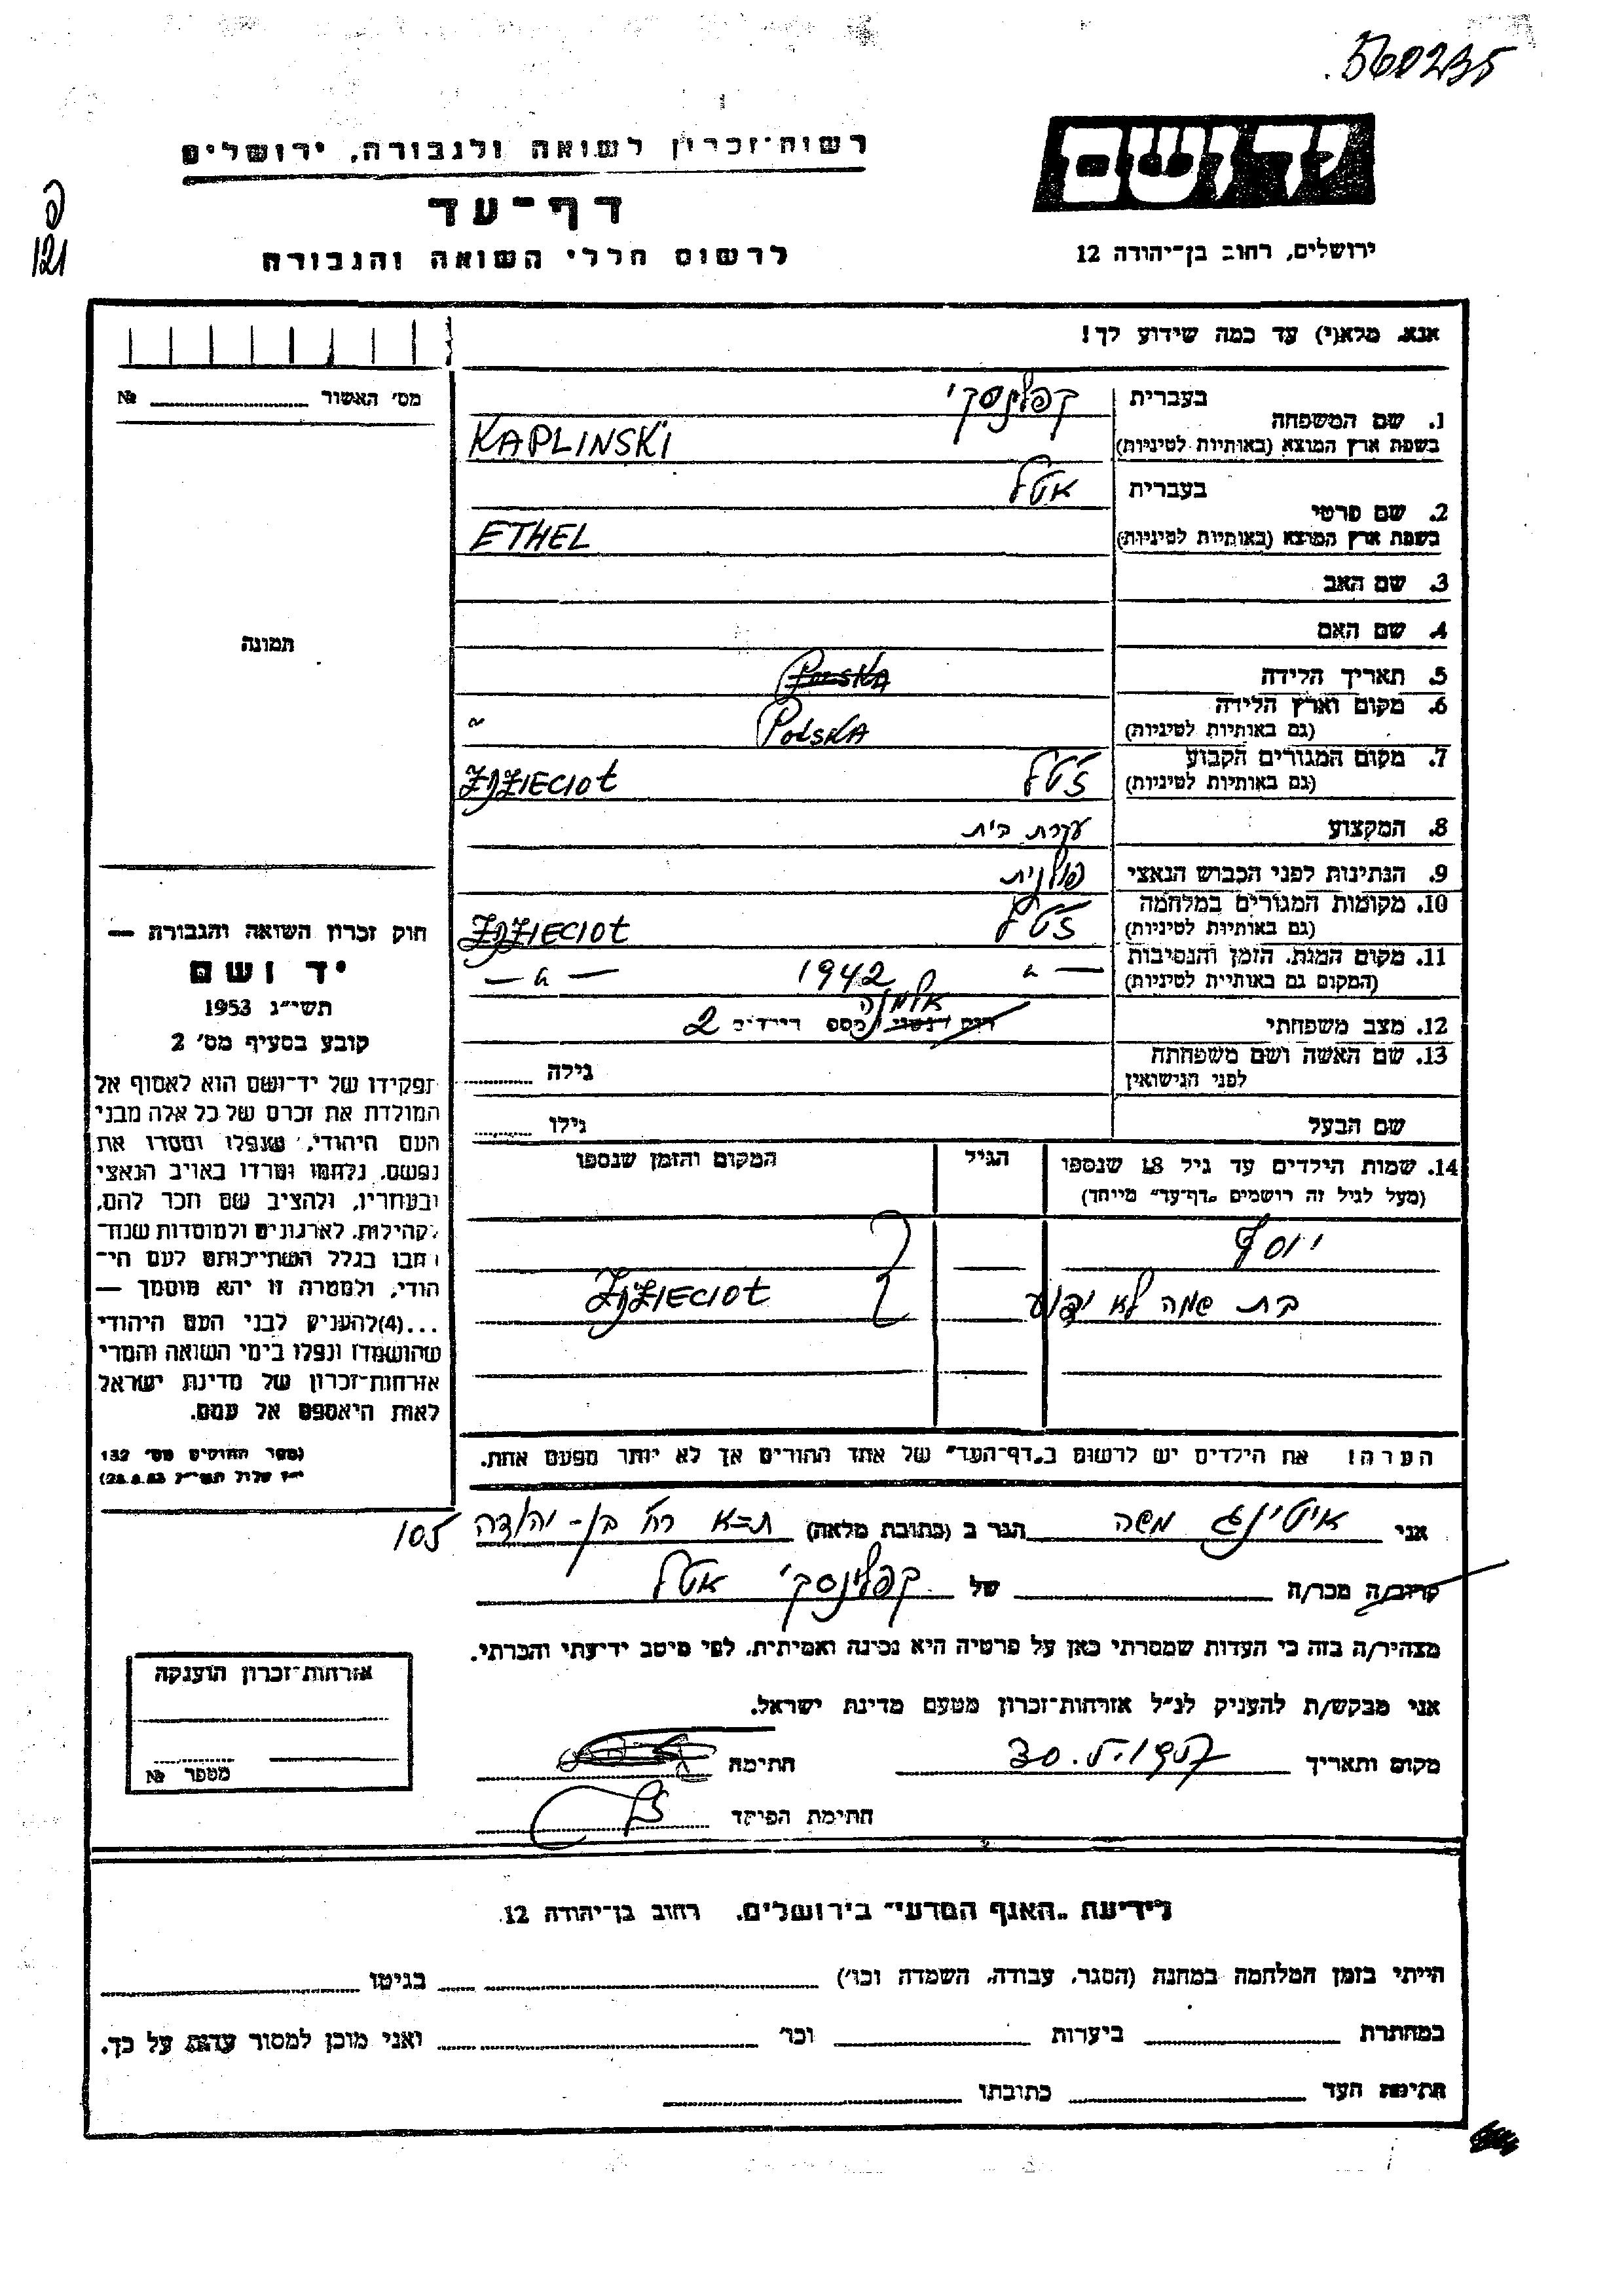 560235
רשות־זכרון לשואה ולגבורה, ירושלים
יד ושם
דף־עד
לרשום חללי השואה והגבורה
ירושלים, רחוב בן־יהודה 12
פ
121
אנא, מלא(י) עד כמה שידוע לך!
מס' האשור № 
1. שם המשפחה
בעברית קפלינסקי
בשפת ארץ המוצא (באותיות לטיניות) KAPLINSKI
2. שם פרטי
בעברית אטל
בשפת ארץ המוצא (באותיות לטיניות) ETHEL
3. שם האב
4. שם האם
תמונה
5. תאריך הלידה Polska
6. מקום וארץ הלידה (גם באותיות לטיניות) Polska
7. מקום המגורים הקבוע (גם באותיות לטיניות) ז'טל ZDZIECIOŁ
8. המקצוע עקרת בית
9. הנתינות לפני הכבוש הנאצי פולנית
10. מקומות המגורים במלחמה (גם באותיות לטיניות) ז'טל ZDZIECIOŁ
11. מקום המות, הזמן והנסיבות (המקום גם באותיות לטיניות) 1942
12. מצב משפחתי אלמנה מספר הילדים 2
13. שם האשה ושם משפחתה לפני הנישואין גילה
שם הבעל גילו
14. שמות הילדים עד גיל 18 שנספו (מעל לגיל זה רושמים „דף־עד" מיוחד) הגיל המקום והזמן שנספו
יוסף
בת שמה לא ידוע ZDZIECIOŁ
הערה! את הילדים יש לרשום ב„דף־העד" של אחד ההורים אך לא יותר מפעם אחת.
חוק זכרון השואה והגבורה —
יד ושם
תשי"ג 1953
קובע בסעיף מס' 2
תפקידו של יד־ושם הוא לאסוף אל
המולדת את זכרם של כל אלה מבני
העם היהודי, שנפלו ומסרו את
נפשם, נלחמו ומרדו באויב הנאצי
ובעוזריו, ולהציב שם וזכר להם,
לקהילות, לארגונים ולמוסדות שנח־
רבו בגלל השתייכותם לעם הי־
הודי, ולמטרה זו יהא מוסמך —
...(4) להעניק לבני העם היהודי
שהושמדו ונפלו בימי השואה והמרי
אזרחות־זכרון של מדינת ישראל
לאות היאספם אל עמם.
(ספר החוקים מס' 132
י"ז אלול תשי"ג 28.8.53)
אני איטינג משה הגר ב (כתובת מלאה) ת"א רח' בן-יהודה 105
קרוב/ה מכר/ה של קפלינסקי אטל
מצהיר/ה בזה כי העדות שמסרתי כאן על פרטיה היא נכונה ואמיתית, לפי מיטב ידיעתי והכרתי.
אני מבקש/ת להעניק לנ"ל אזרחות־זכרון מטעם מדינת ישראל.
מקום ותאריך חתימה
חתימת הפוקד
אזרחות־זכרון הוענקה
מספר №
לידיעת „האגף המדעי" בירושלים, רחוב בן־יהודה 12
הייתי בזמן המלחמה במחנה (הסגר, עבודה, השמדה וכו') בגיטו
במחתרת ביערות וכו' ואני מוכן למסור עדות על כך.
חתימת העד כתובתו